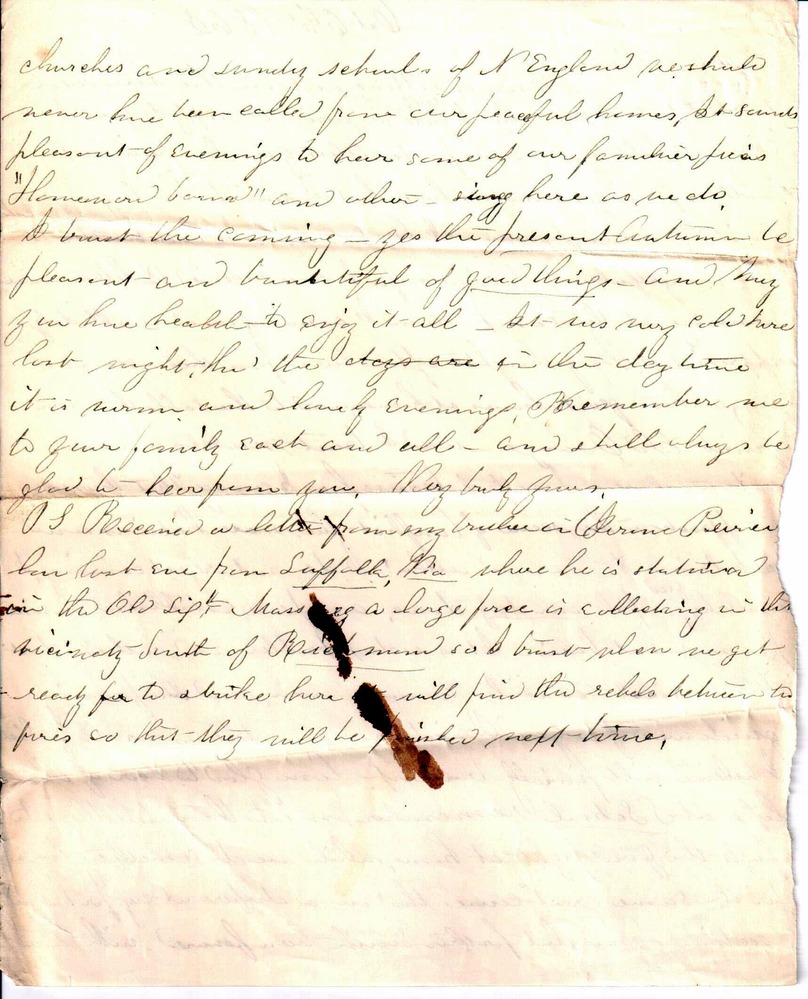 churches and sundy schools of N England we should
never have been called from our peaceful homes, It sounds
pleasant of evenings to hear some of our familier
"Homeward bound" and other - sung here as we do,
I trust the coming - yes the present Autumn be
pleasant and bountiful of good things - and may
you have health to enjoy it all - It was very cold here
last night, tho' the days are in the day time
it is warm and lovely evenings, Remember me
to your family each and all - and shall always be
glad to hear from you, Very truly yours,
P S Received a letter from my brother in
law last eve from Suffolk, Via where he is stationed
in the Old Sixt Mass Reg a large force is collecting in the
vicinity South of Richmond so I trust when we get
ready for to strike here will find the rebels between two
fires so that they will be finished next time,